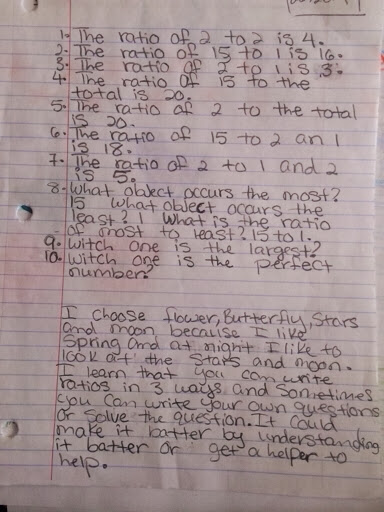 1- The ratio of 2 to 2 is 4.
2- The ratio of 15 to 1 is 16.
3- The ratio of 2 to 1 is 3.
4. The ratio of 15 to the
total is 20.
5. The ratio of 2 to the total
is 20.
6. The ratio of 15 to 2 an 1
is 18.
7. The ratio of 2 to 1 and 2
is 5.
8-What object occurs the most?
15 What object occurs the
least? 1 What is the ratio
of most to least? 15 to 1.
9. Witch one is the largest?
10. Witch one is the perfect
number?
I choose flower, Butterfly, Stars
and moon because I like
Spring and at night I like to
look at the stars and moon.
I learn that you can write
ratios in 3 ways and Sometimes
you can write your own questions
or solve the question. It could
make it batter by understanding
it batter or get a helper to
help.